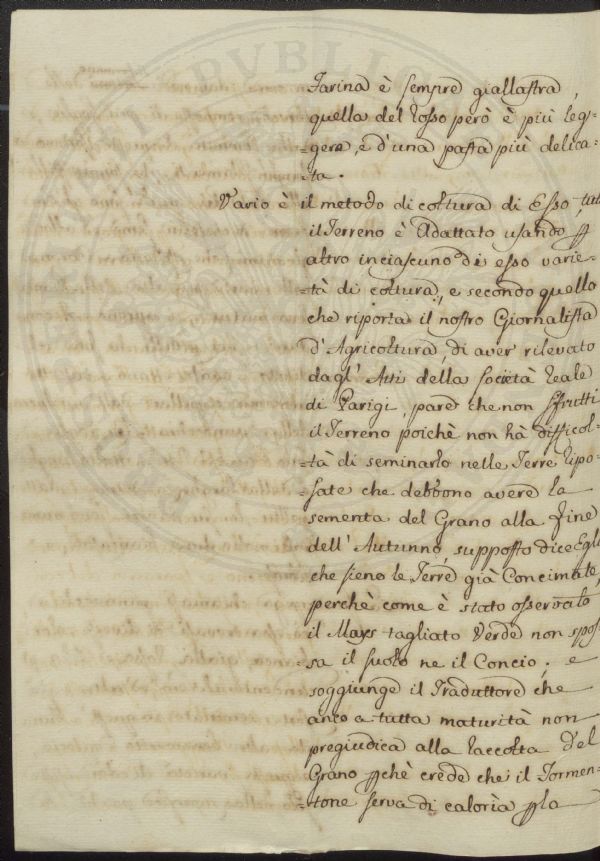 Farina è sempre giallastra,
quella del Rosso però è più leg-
=gera, e d'una pasta più delica=
=ta.
Vario è il metodo di coltura di Esso, tut
il Terreno è Adattato usando
altro in ciascuno di esso varie=
=tà di coltura, e secondo quello
che riporta il nostro Giornalista
d'Agricoltura, di aver rilevato
dagl' Atti della Società Reale
di Parigi, pare che non sfrutti
il Terreno poichè non hà difficol=
=tà di seminarlo nelle Terre ripo=
=sate che debbono avere la
sementa del Grano alla fine
dell' Autunno, supposto dice Egli
che sieno le Terre già Concimate,
perchè come è stato osservato
il Mays tagliato Verde non spos=
=sa il suolo ne il Concio; e
soggiunge il Traduttore che
anco a tutta maturità non
pregiudica alla Raccolta del
Grano pchè crede che il Formen=
=tone serva di calorìa p la